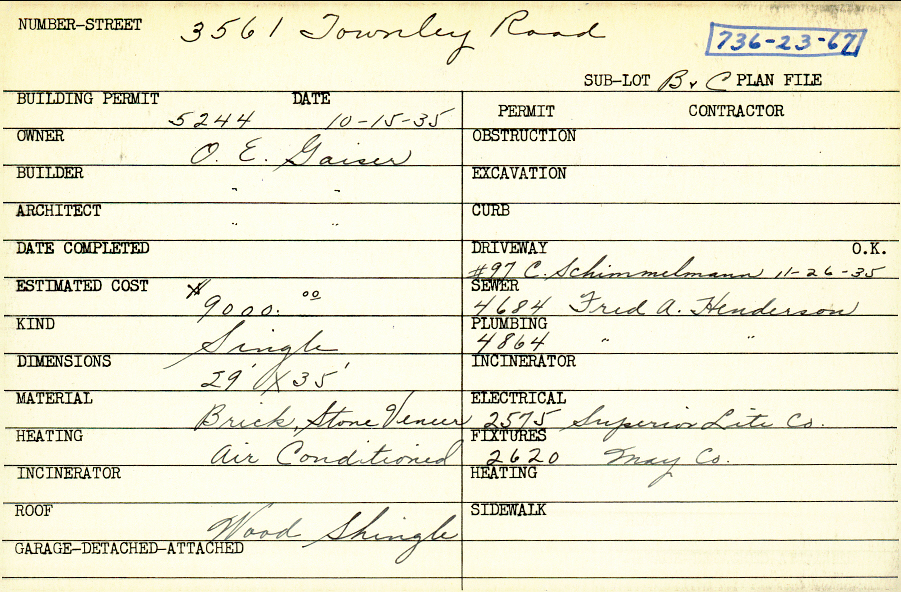 NUMBER-STREET 3561 Townley Road
736-23-67
SUB-LOT B & C PLAN FILE
BUILDING PERMIT DATE
5244 10-15-35
PERMIT CONTRACTOR
OWNER
O. E. Gaiser
OBSTRUCTION
BUILDER
" "
EXCAVATION
ARCHITECT
" "
CURB
DATE COMPLETED
DRIVEWAY O.K.
#97 C. Schimmelmann 11-26-35
ESTIMATED COST
$ 9000.00
SEWER
4684 Fred A. Henderson
KIND
Single
PLUMBING
4864 " "
DIMENSIONS
29' X 35'
INCINERATOR
MATERIAL
Brick, Stone Veneer
ELECTRICAL
2575 Superior Lite Co.
HEATING
Air Conditioned
FIXTURES
2620 May Co.
INCINERATOR
HEATING
ROOF
Wood Shingle
SIDEWALK
GARAGE-DETACHED-ATTACHED